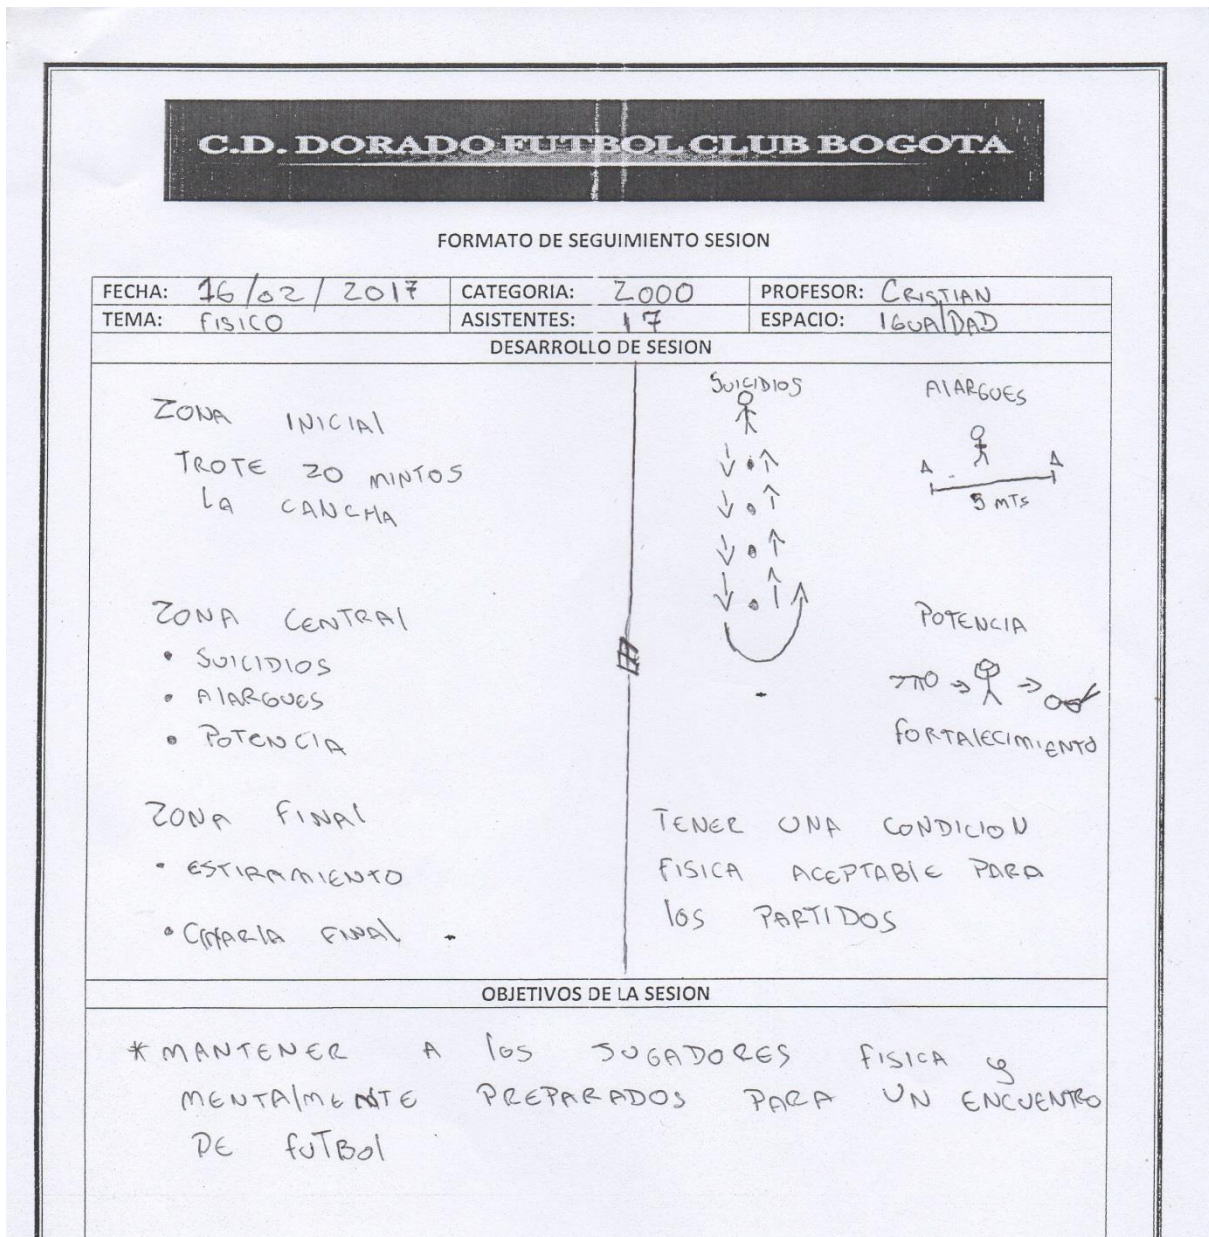 C.D. DORADO FUTBOL CLUB BOGOTA
FORMATO DE SEGUIMIENTO SESION
FECHA: 16/02/2017 CATEGORIA: 2000 PROFESOR: CRISTIAN
TEMA: FISICO ASISTENTES: 17 ESPACIO: IGUALDAD
DESARROLLO DE SESION
ZONA INICIAL
TROTE 20 MINTOS
LA CANCHA
ZONA CENTRAL
• SUICIDIOS
• ALARGUES
• POTENCIA
ZONA FINAL
• ESTIRAMIENTO
• FINAL
SUICIDIOS
ALARGUES
5 MTS
POTENCIA
FORTALECIMIENTO
TENER UNA CONDICION
FISICA ACEPTABLE PARA
LOS PARTIDOS
OBJETIVOS DE LA SESION
* MANTENER A LOS JUGADORES FISICA Y
MENTALMENTE PREPARADOS PARA UN ENCUENTRO
DE FUTBOL